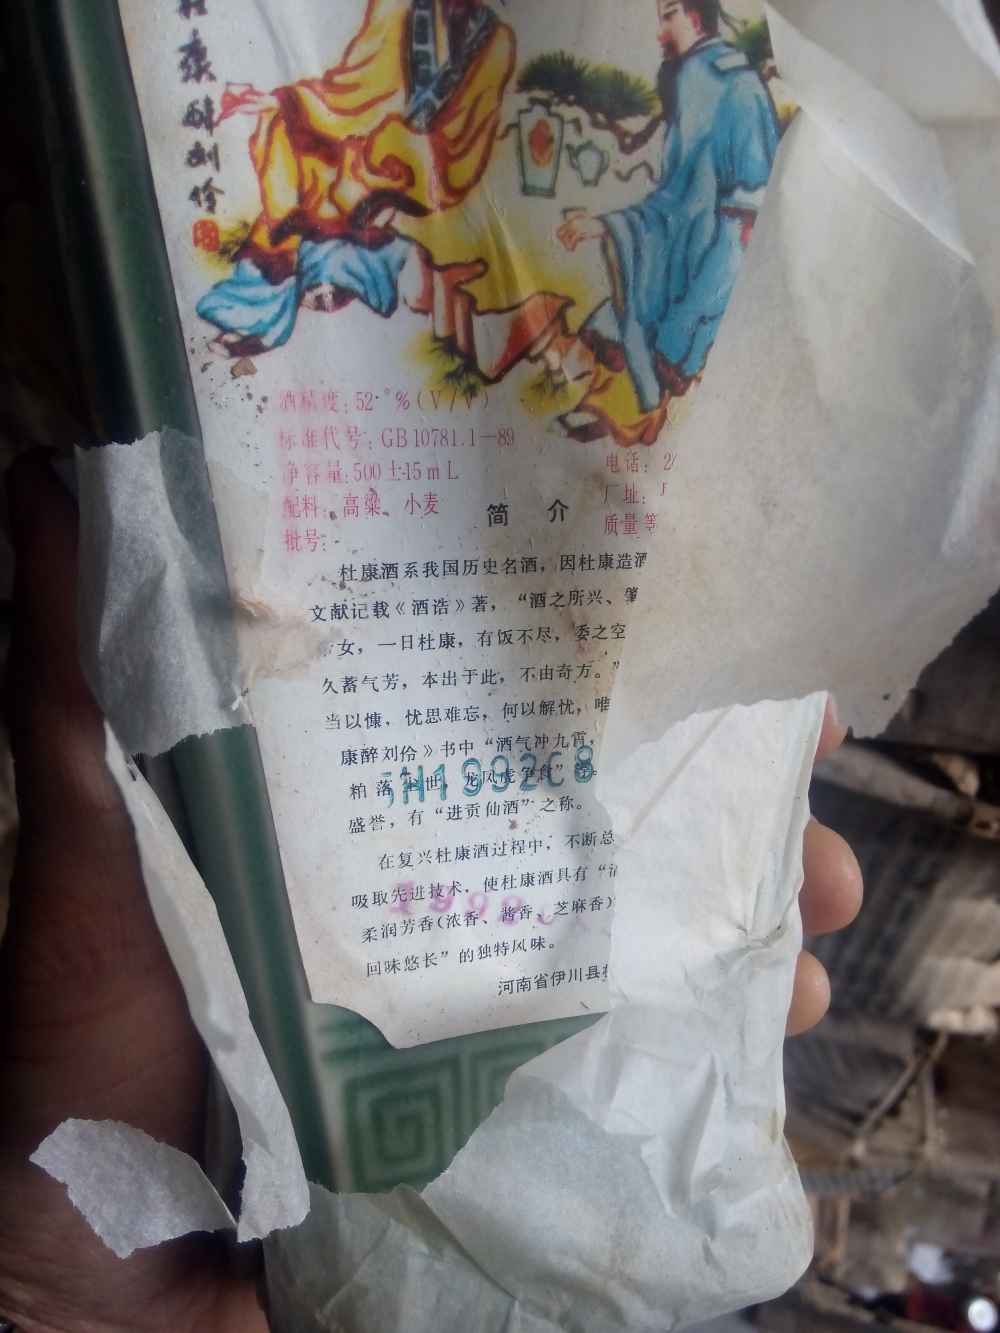 杜康醉刘伶
酒精度：52°%（V/V）
标准代号：GB10781.1—89
净容量：500±15mL
配料：高粱、小麦
批号：
电话：2
厂址：
质量等
简 介
杜康酒系我国历史名酒，因杜康造酒
文献记载《酒诰》著，“酒之所兴、肇
女，一日杜康，有饭不尽，委之空
久蓄气芳，本出于此，不由奇方。”
当以慷，忧思难忘，何以解忧，唯
康醉刘伶》书中“酒气冲九霄，
粕落 世，龙凤虎争食”等。
H199208
盛誉，有“进贡仙酒”之称。
在复兴杜康酒过程中，不断总
吸取先进技术，使杜康酒具有“清
柔润芳香(浓香、酱香、芝麻香)
回味悠长”的独特风味。
河南省伊川县杜